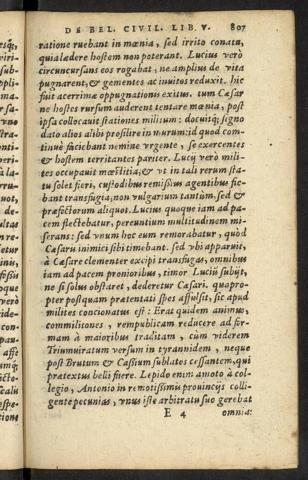 DE BEL. CIVIL. LIB. V. 807
ratione ruebant in mœnia, sed irrito conatu,
quia lædere hostem non poterant. Lucius verò
circuncursans eos rogabat, ne amplius de vita
pugnarent, & gementes ac inuitos reduxit. hic
fuit acerrimæ oppugnationis exitus. tum Cæsar
ne hostes rursum auderent tentare mœnia, post
ipsa collocauit stationes militum: docuitq; signo
dato alios alibi prosilire in murum: id quod com-
tinuè faciebant nemine vrgente, se exercentes
& hostem territantes pariter. Lucij verò mili-
tes occupauit mœstitia, & vt in tali rerum sta-
tu solet fieri, custodibus remissius agentibus fie-
bant transfugia, non vulgarium tantùm, sed &
præfectorum aliquot. Lucius quoque iam ad pa-
cem flectebatur, pereuntium multitudinem mi-
serans: sed vnum hoc eum remorabatur, quòd
Cæsaris inimici sibi timebant. sed vbi apparuit,
à Cæsare clementer excipi transfugas, omnibus
iam ad pacem pronioribus, timor Lucium subijt,
ne si solus obstaret, dederetur Cæsari. quapro-
pter postquam prætentati spes affulsit, sic apud
milites concionatus est: Erat quidem animus,
commilitones, rempublicam reducere ad for-
mam à maioribus traditam, cùm viderem
Triumuiratum versum in tyrannidem, neque
post Brutum & Cassium sublatos cessantem, qui
prætextus belli fuere. Lepido enim amoto à col-
legio, Antonio in remotissimis prouincijs colli-
gente pecunias, vnus iste arbitratu suo gerebat
E 4 omnia: